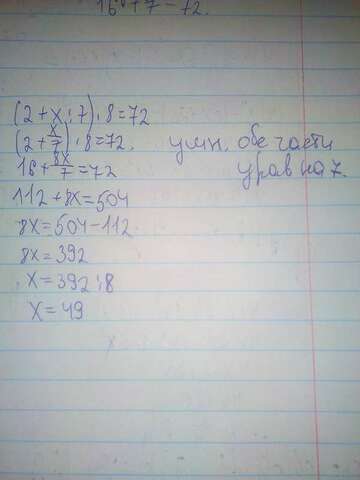 16 + 7 = 72.
(2 + x : 7) · 8 = 72
(2 + x/7) · 8 = 72. умн. обе части
16 + 8x/7 = 72 урав на 7.
112 + 8x = 504
8x = 504 - 112
8x = 392
x = 392 : 8
x = 49